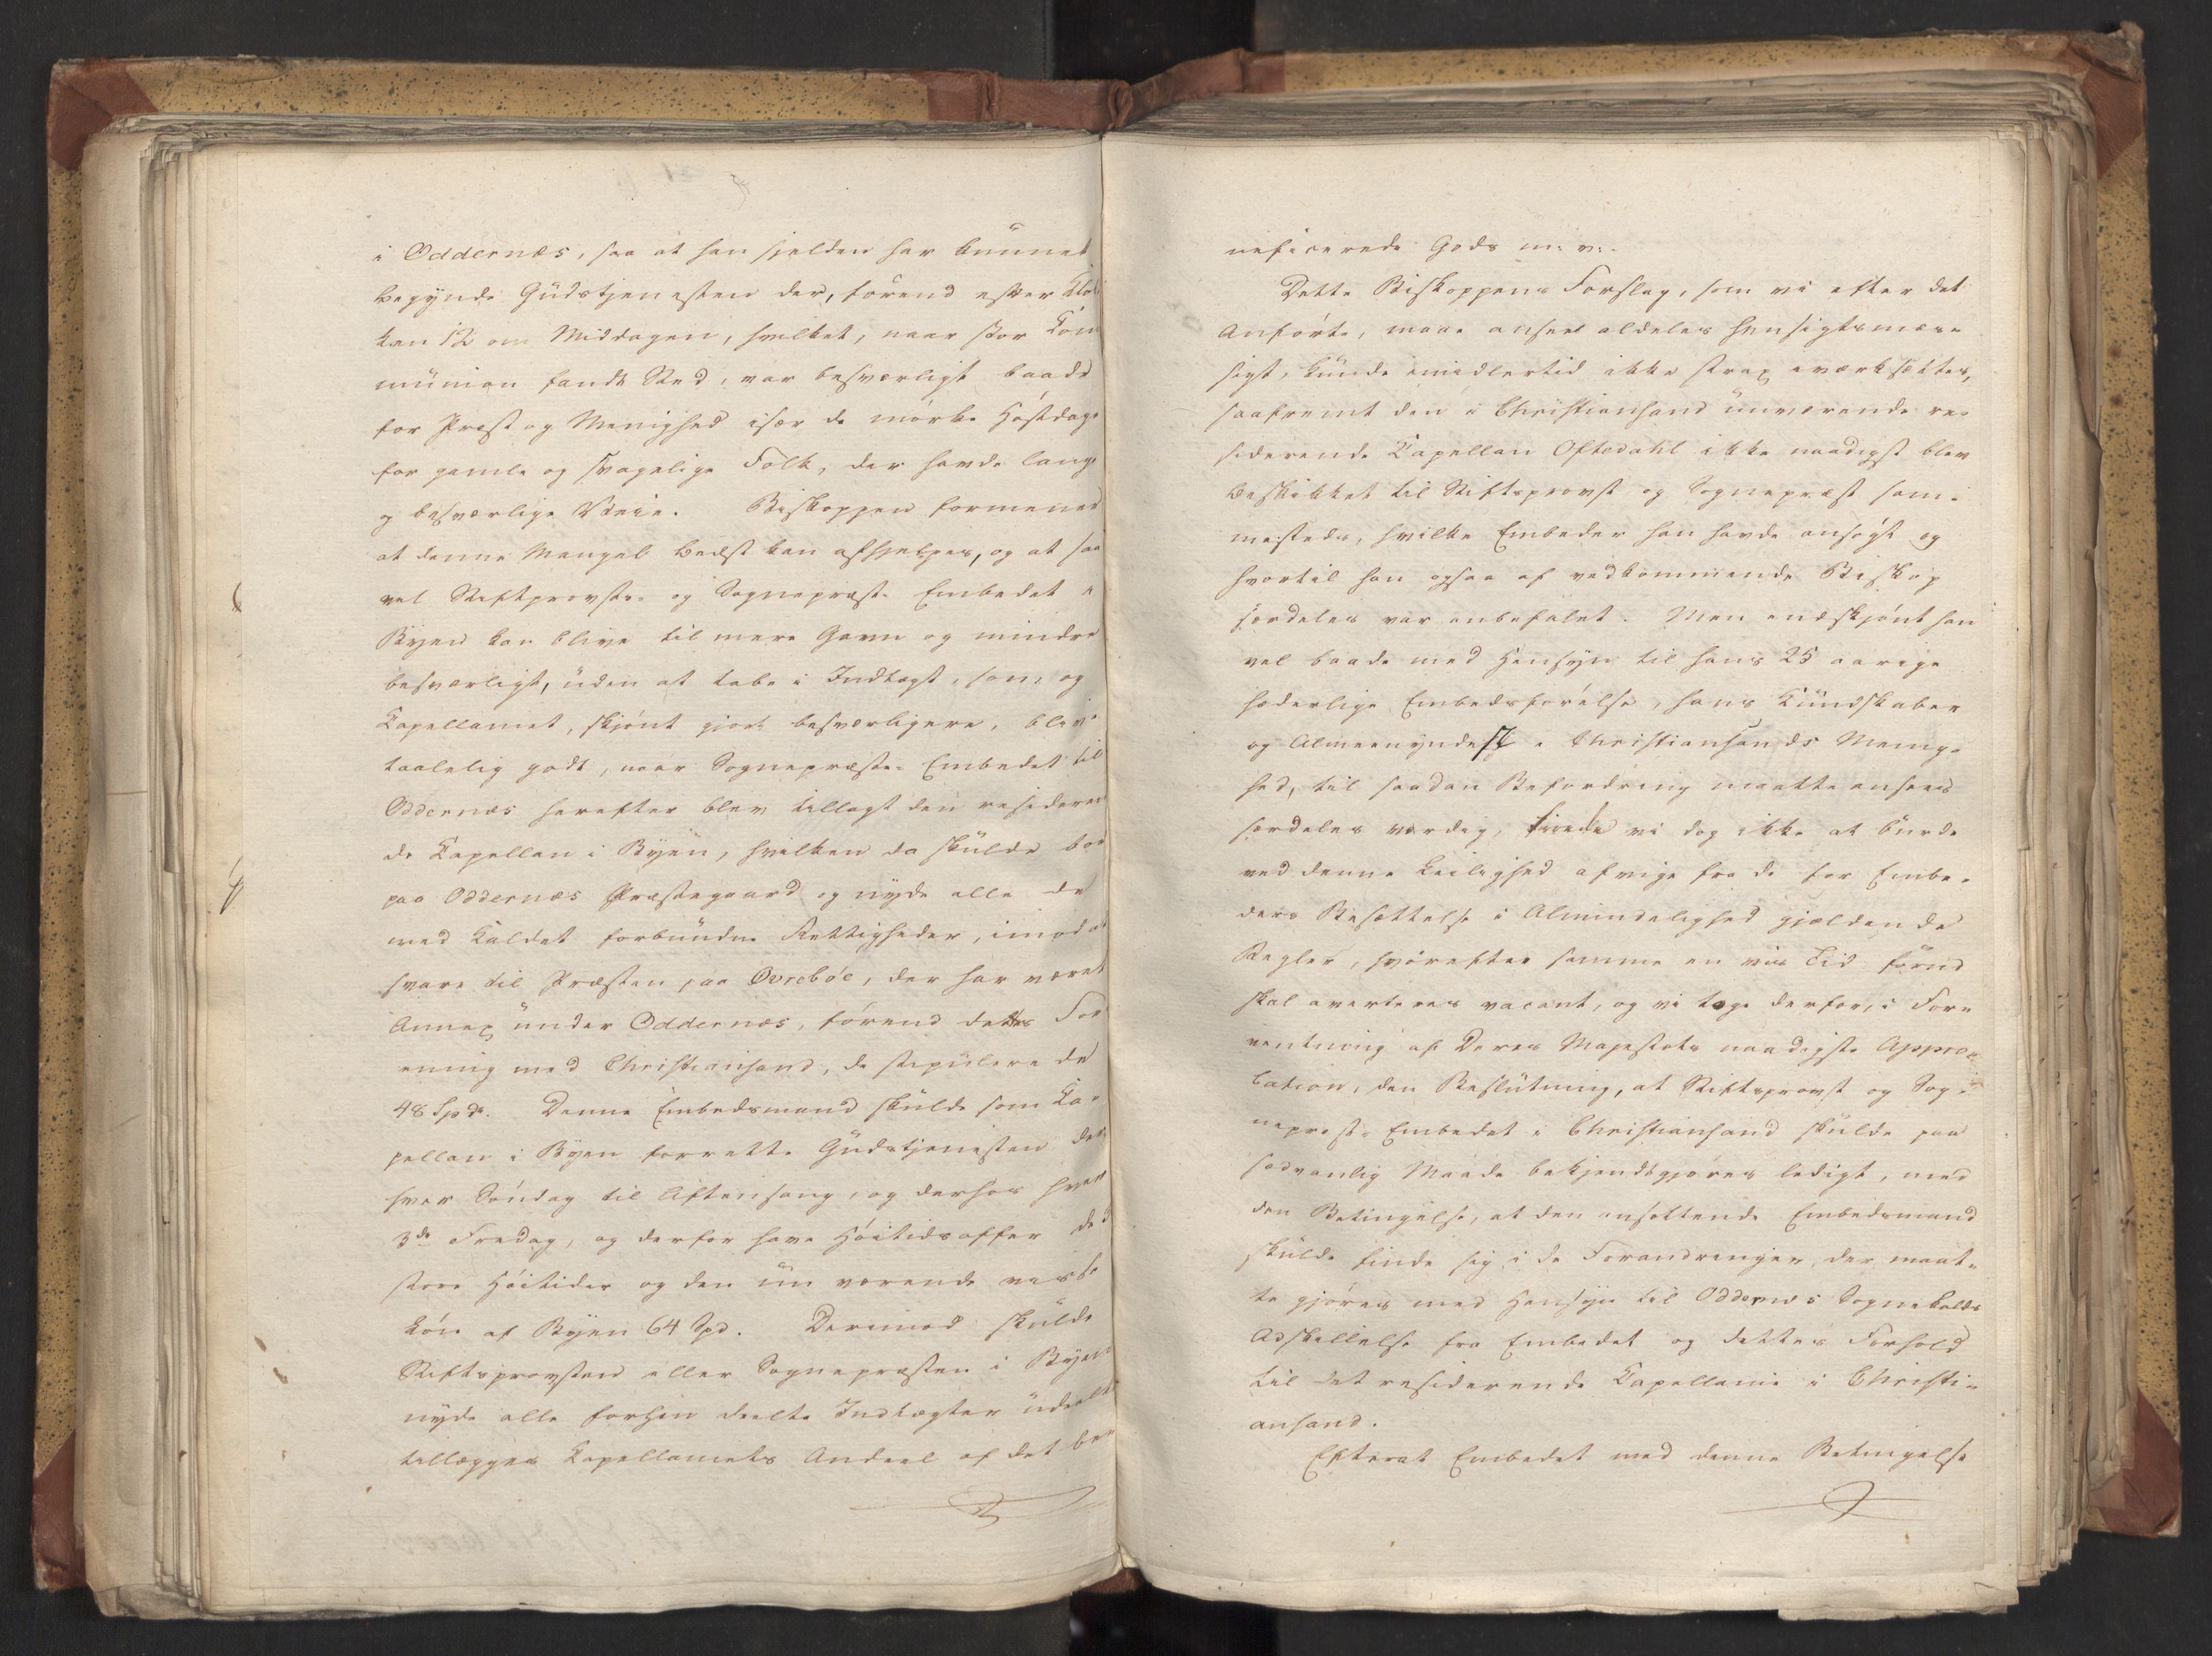 i Oddernæs, saa at han sjelden har kunnet
begynde Gudstjenesten der, förend efter Klok
ken 12 om Middagen, hvilket, naar stor Com
munion fandt Sted, var besværligt baade
for Præst og Menighed især de mörke Höstdage
for gamle og svagelige Folk, der havde lange
og besværlige Veie. Biskoppen formener
at denne Mangel bedst kan afhjelpes, og at saa
vel Stiftprovste- og Sognepræst- Embedet i
Byen kan blive til mere Gavn og mindre
besværligt, uden at tabe i Indtægt, som og
Capellaniet, skjönt gjort besværligere, blive
taalelig godt, naar Sognepræste- Embedet til
Oddernæs herefter blev tillagt den resideren
de Capellan i Byen, hvilken da skulde boe
paa Oddernæs Præstegaard og nyde alle de
med Kaldet forbundne Rettigheder, imod at
svare til Præsten paa Övreböe, der har været
Annex under Oddernæs, förend dettes For
ening med Christiansand, de stipulerede
48 Spd. Denne Embedsmand skulde som Ca-
pellan i Byen forrette Gudstjenesten der
hver Söndag til Aftensang, og derhos hver
3de Fredag, og derfor have Höitidsoffer de 3
store Höitider og den nu værende visse
Lön af Byen 64 Spd. Derimod skulde
Stiftsprovsten eller Sognepræsten i Byen
nyde alle forhen deelte Indtægter udeelt
tillægges Capellaniets Andeel af det be
neficerede Gods m: v:.
Dette Biskoppens Forslag, som vi efter det
Anförte, maae ansee aldeles hensigtsmæs-
sigt, kunde imidlertid ikke strax iværksættes,
saafremt den i Christiansand nuværende re-
siderende Capellan Oftedahl ikke naadigst blev
beskikket til Stiftsprovst og Sognepræst sam-
mesteds, hvilke Embeder han havde ansögt og
hvortil han ogsaa af vedkommende Biskop
særdeles var anbefalet. Men endskjönt han
vel baade med Hensyn til hans 25 aarige
hæderlige Embedsförelse, hans Kundskaber
og Almeenyndest i Christiansands Menig-
hed, til saadan Befordring maatte ansees
særdeles værdig, troede vi dog ikke at burde
ved denne Leilighed afvige fra de for Embe-
ders Besættelse i Almindelighed gjældende
Regler, hvorefter samme en vis Tid förend
skal averteres vacant, og vi toge derfor, i For-
ventning af Deres Majestæts naadigste Appro-
bation, den Beslutning, at Stiftsprovst og Sog-
nepræst- Embedet i Christiansand skulde paa
sædvanlig Maade bekjendtgjöres ledigt, med
den Betingelse, at den ansættende Embedsmand
skulde finde sig i de Forandringer, der maat-
te gjöres med Hensyn til Oddernæs Sognekalds
Adskillelse fra Embedet og dettes Forhold
til det residerende Capellanie i Christi-
ansand.
Efterat Embedet med denne Betingelse